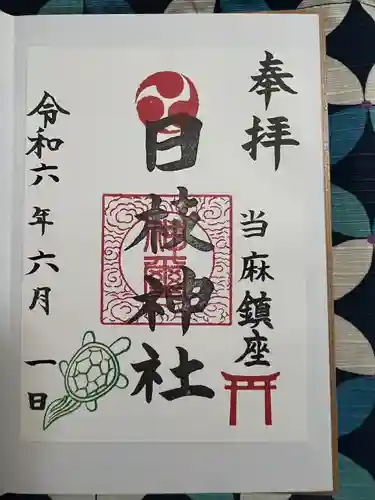 奉拝
当麻鎮座
日枝神社
令和六年六月一日